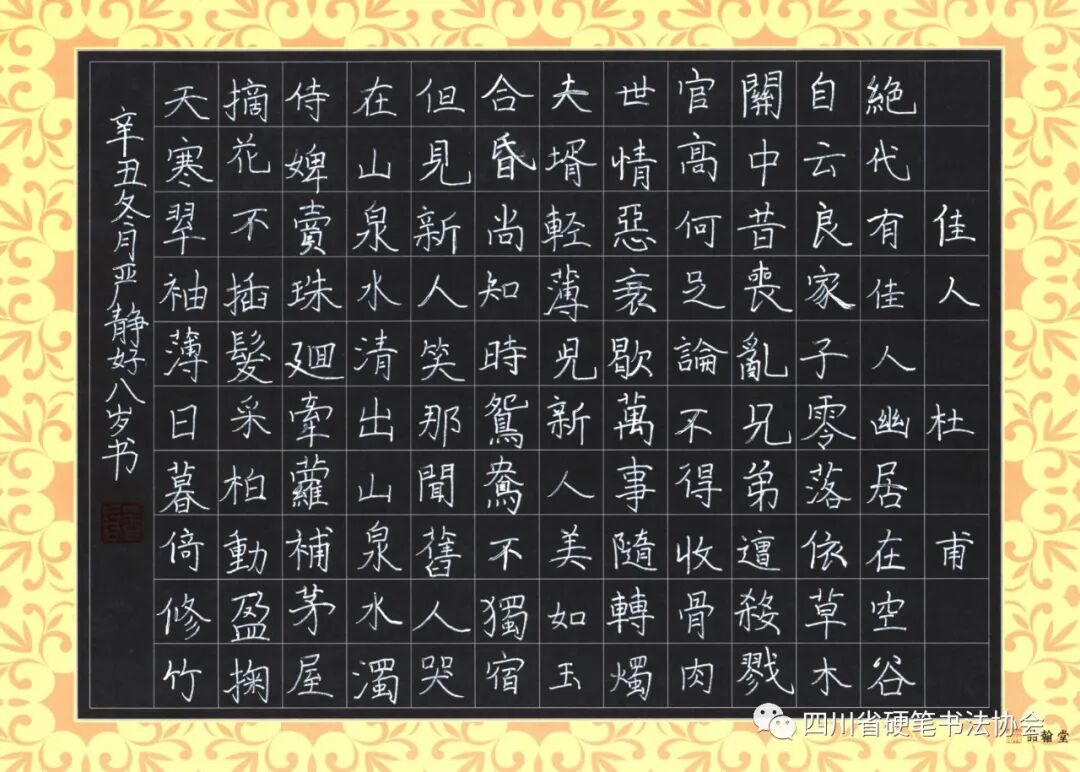 佳人 杜甫
絕代有佳人幽居在空谷
自云良家子零落依草木
關中昔喪亂兄弟遭殺戮
官高何足論不得收骨肉
世情惡衰歇萬事隨轉燭
夫壻輕薄兒新人美如玉
合昏尚知時鴛鴦不獨宿
但見新人笑那聞舊人哭
在山泉水清出山泉水濁
侍婢賣珠廻牽蘿補茅屋
摘花不插髮采柏動盈掬
天寒翠袖薄日暮倚修竹
辛丑冬月严静好八岁书
四川省硬笔书法协会
詒翰堂